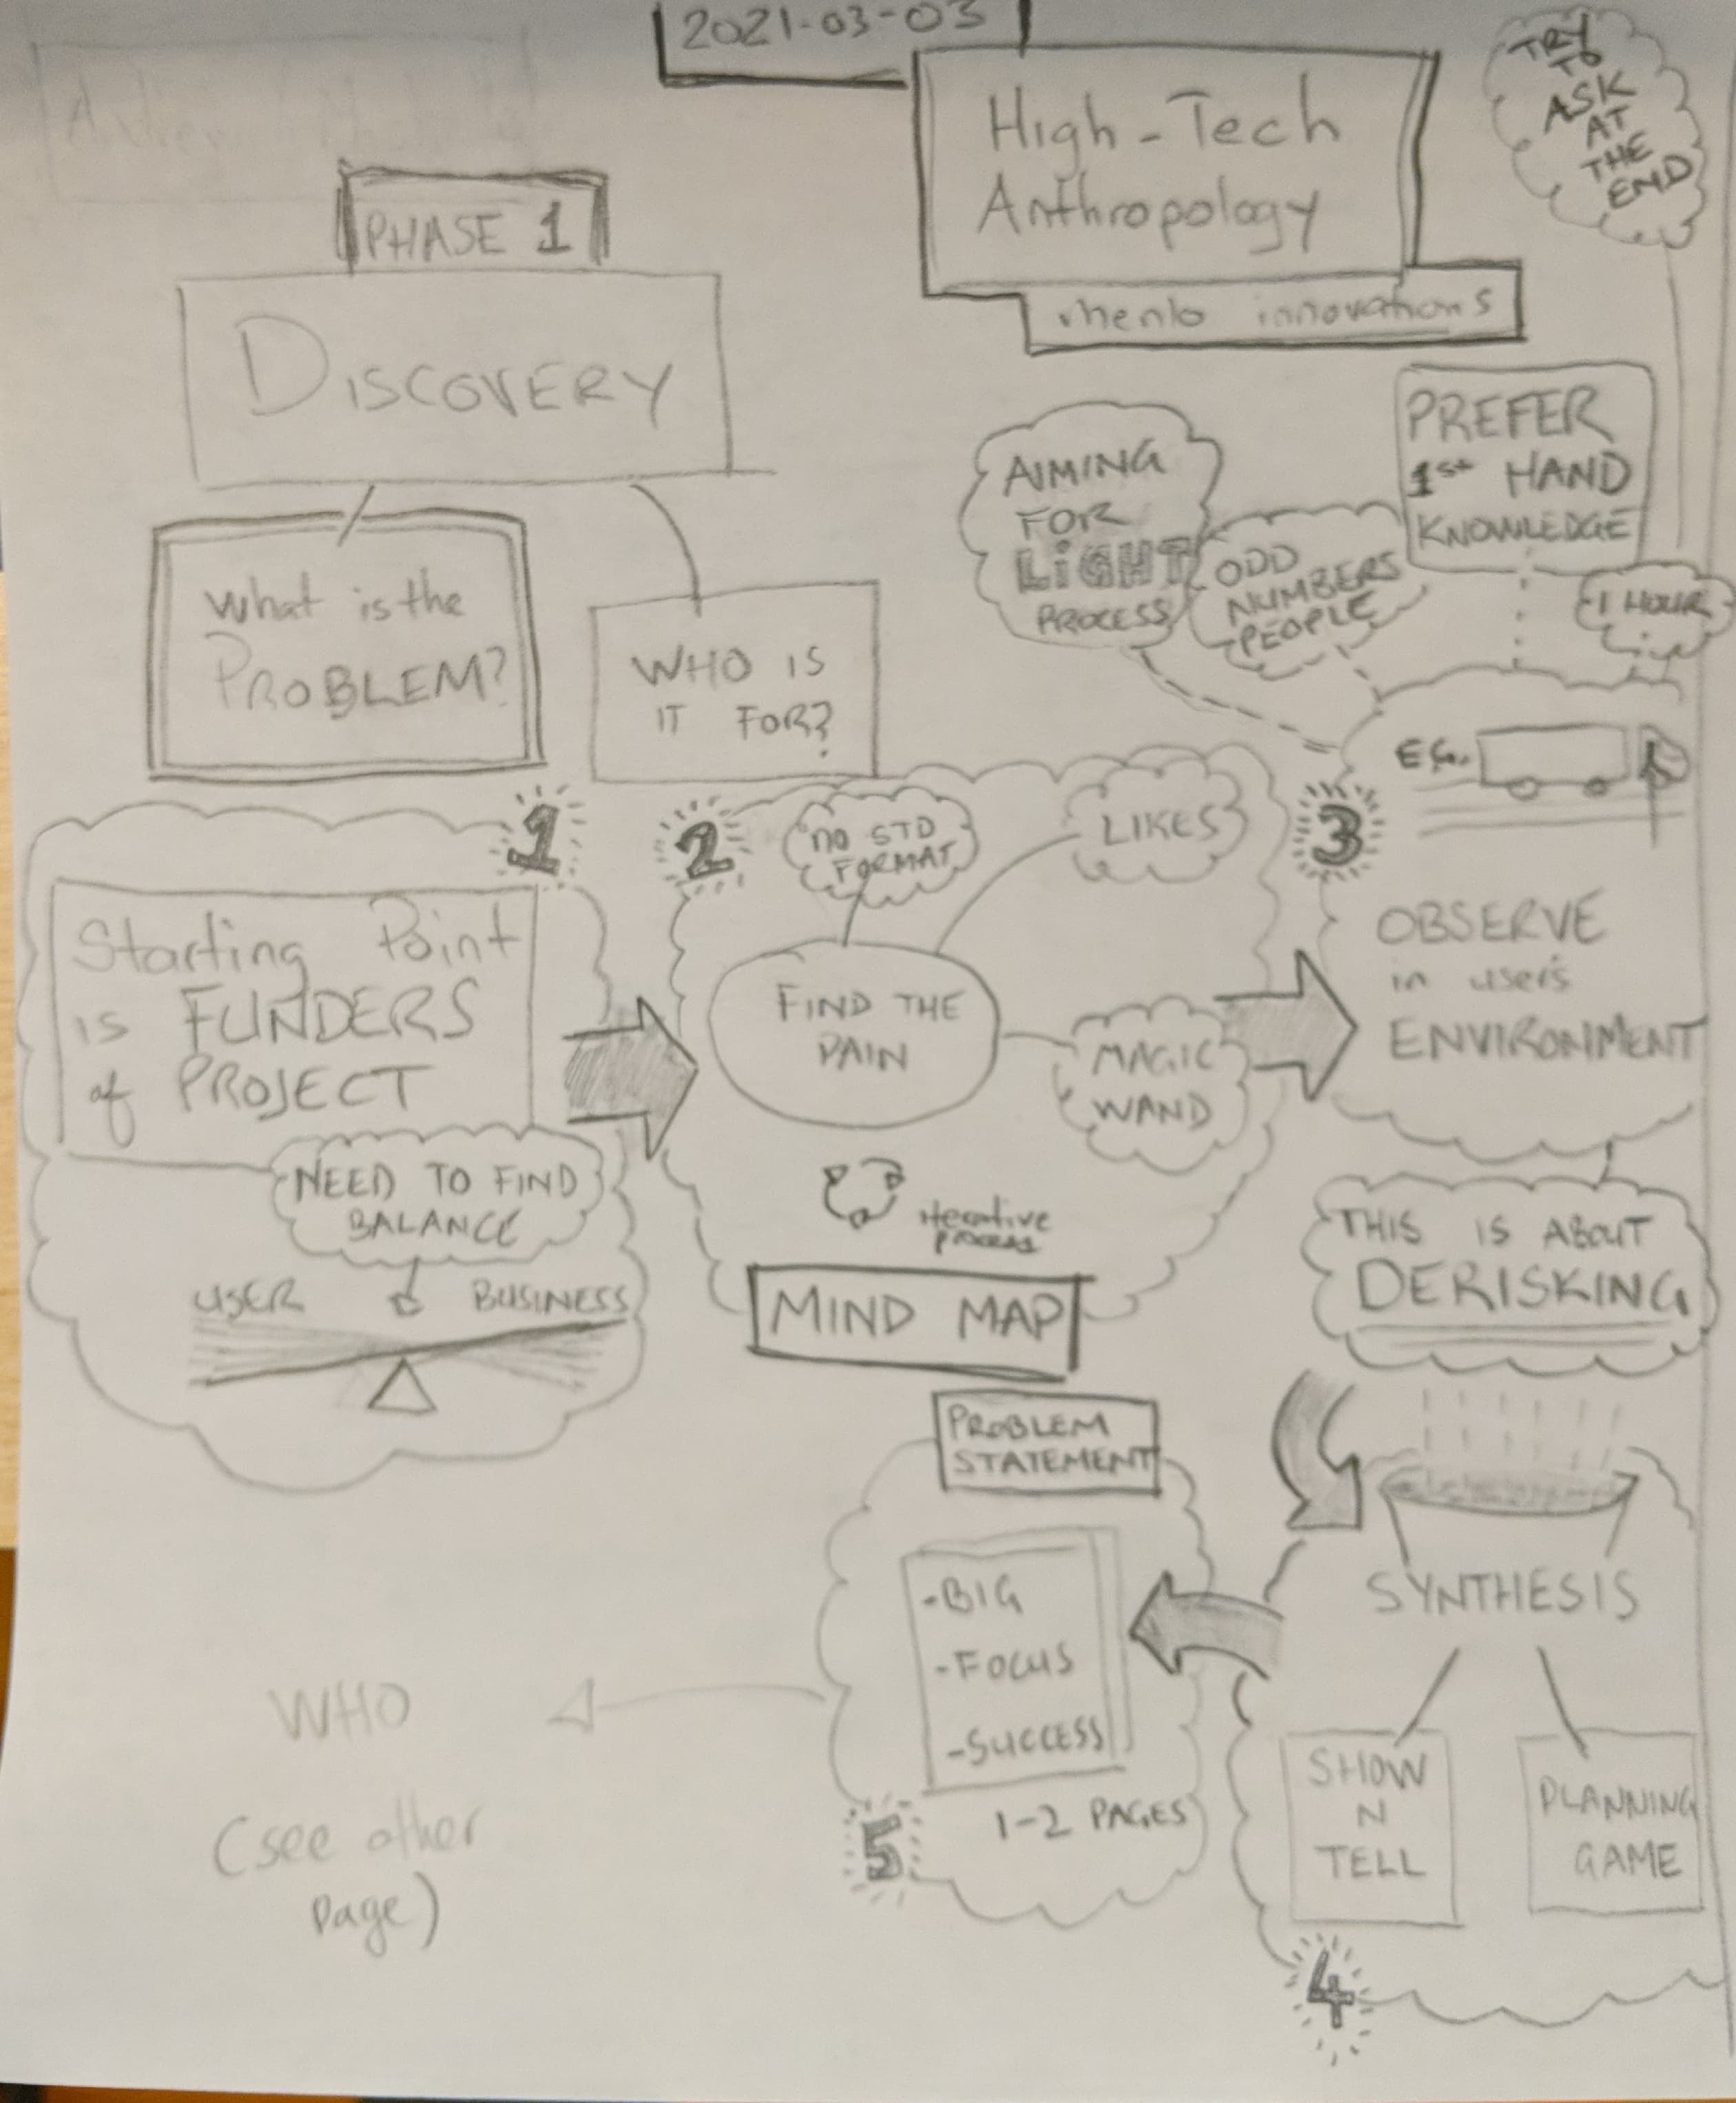 2021-03-03
High-Tech
Anthropology
menlo innovations
TRY
TO
ASK
AT
THE
END
PHASE 1
DISCOVERY
What is the
PROBLEM?
WHO IS
IT FOR?
AIMING
FOR
LIGHT
PROCESS
ODD
NUMBERS
PEOPLE
PREFER
1st HAND
KNOWLEDGE
1 HOUR
1
Starting Point
is FUNDERS
of PROJECT
NEED TO FIND
BALANCE
USER BUSINESS
2
NO STD
FORMAT
LIKES
FIND THE
PAIN
MAGIC
WAND
iterative
process
MIND MAP
3
EG.
OBSERVE
in user's
ENVIRONMENT
THIS IS ABOUT
DERISKING
SYNTHESIS
SHOW
N
TELL
PLANNING
GAME
4
PROBLEM
STATEMENT
-BIG
-FOCUS
-SUCCESS
1-2 PAGES
5
WHO
(see other
page)